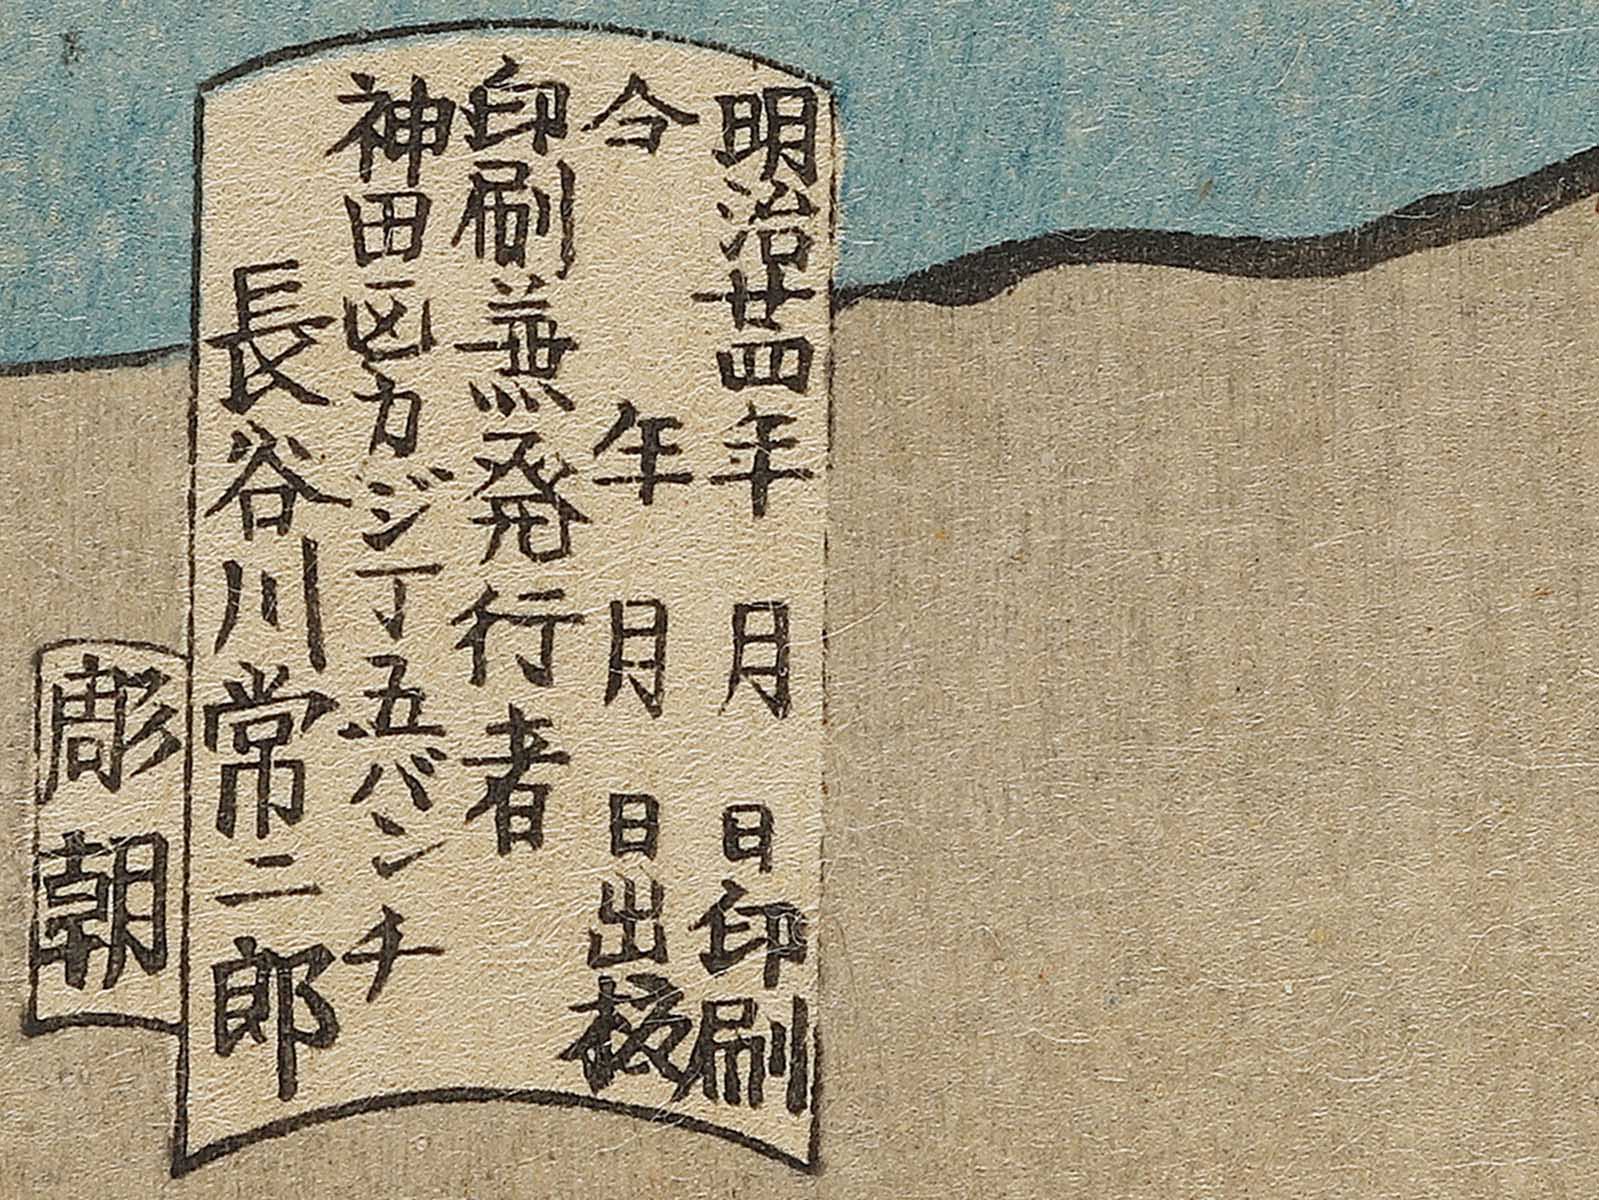 明治廿四年　月　日印刷
仝　年　月　日出板
印刷兼発行者
神田区カジ丁五バンチ
長谷川常二郎
彫朝